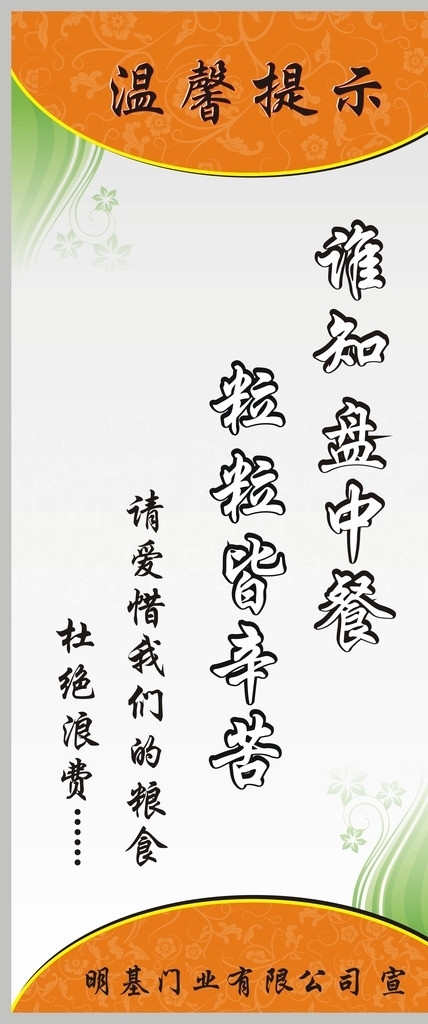 温馨提示
谁知盘中餐
粒粒皆辛苦
请爱惜我们的粮食
杜绝浪费……
明基门业有限公司 宣